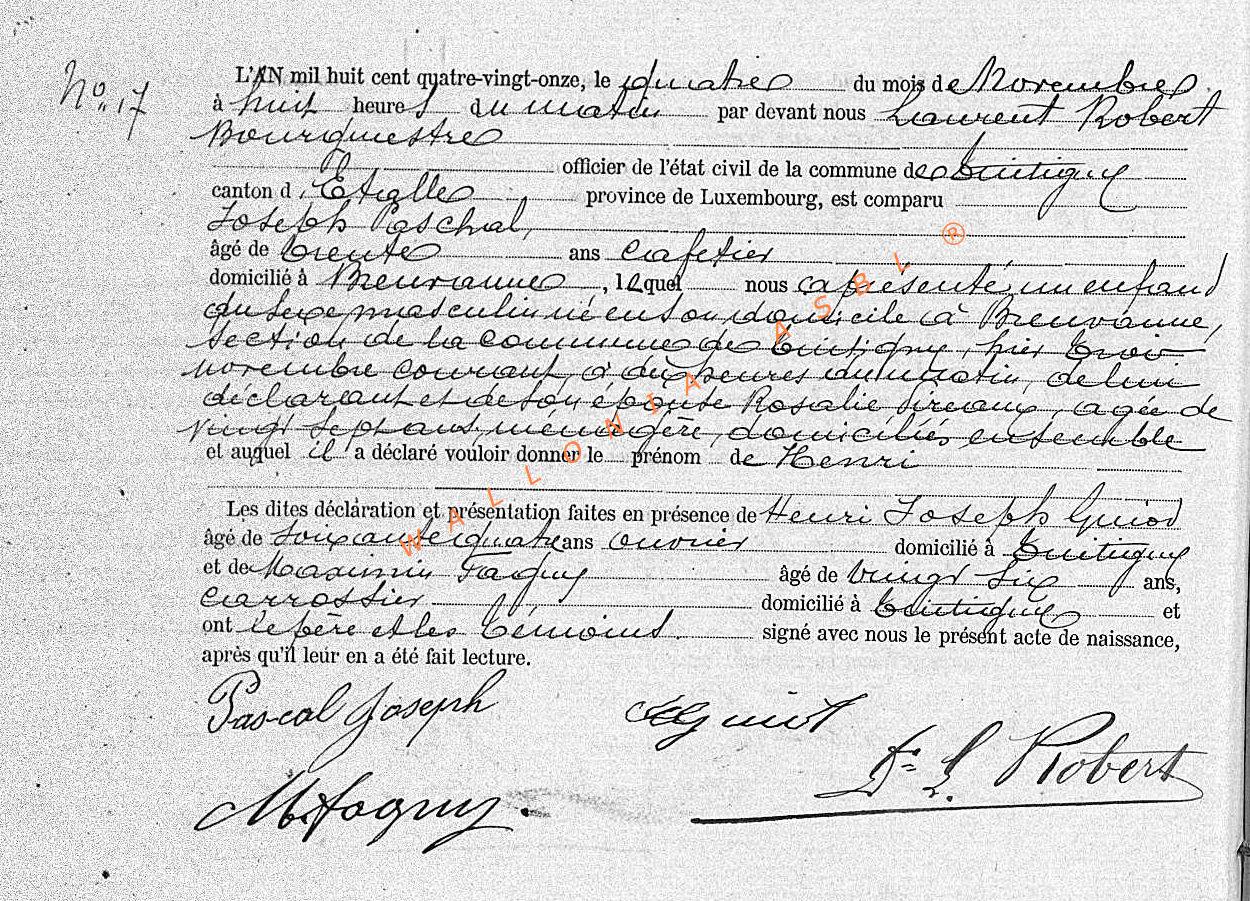 No. 17
L'AN mil huit cent quatre-vingt-onze, le quatre du mois de Novembre
à huit heures du matin par devant nous Laurent Robert
Bourgmestre
officier de l'état civil de la commune de Tintigny
canton d'Etalle province de Luxembourg, est comparu
Joseph Paschal,
âgé de trente ans cafetier
domicilié à Breuvanne, lequel nous a présenté un enfant
du sexe masculin né en son domicile à Breuvanne,
section de la commune de Tintigny, hier trois
novembre courant, à dix heures du matin, de lui
déclarant et de son épouse Rosalie , agée de
vingt sept ans, ménagère, domiciliés ensemble
et auquel il a déclaré vouloir donner le prénom de Henri
Les dites déclaration et présentation faites en présence de Henri Joseph Guiot
âgé de soixante quatre ans ouvrier domicilié à Tintigny
et de Maximin Fagny âgé de vingt six ans,
carrossier domicilié à Tintigny et
ont le père et les témoins signé avec nous le présent acte de naissance,
après qu'il leur en a été fait lecture.
Pascal Joseph Guiot
Dr L. Robert
M. Fagny.
WALLONIA ASBL ®